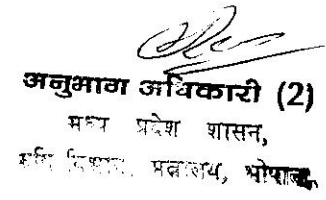 अनुभाग अधिकारी (2)
मध्य प्रदेश शासन,
विभाग, मंत्रालय, भोपाल